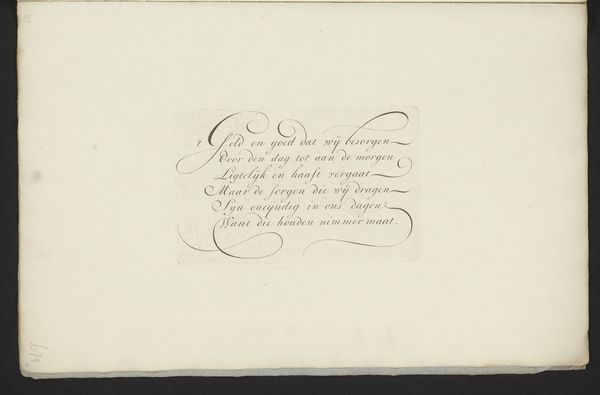 't Geld en goed dat wÿ besorgen
Door den dag tot aan de morgen
Ligtelÿk en haast vergaat
Maar de sorgen die wÿ dragen
Syn oneÿndig in ons dagen
Want die houden nimmer maat.